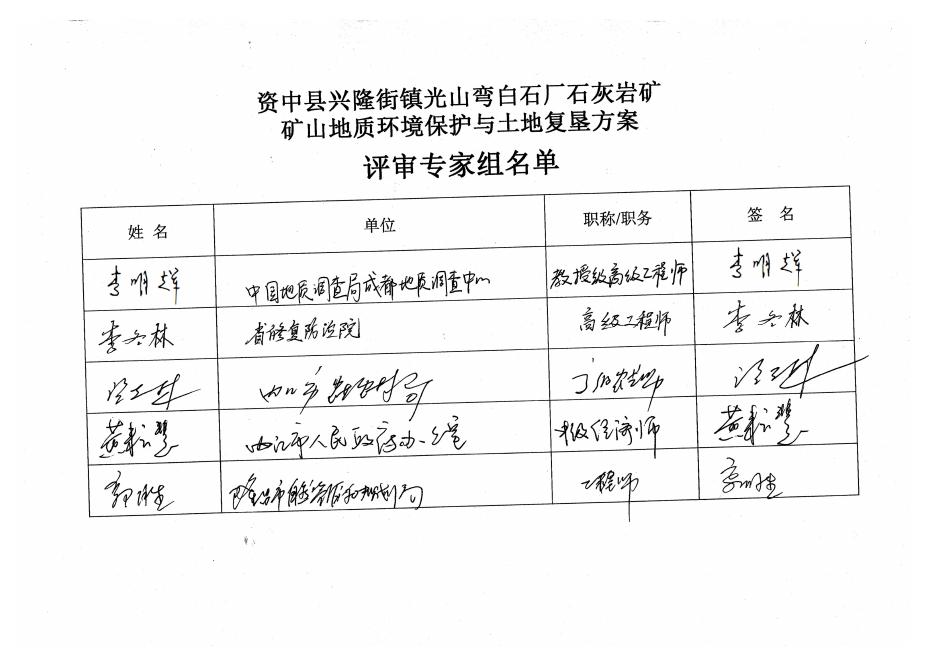 资中县兴隆街镇光山弯白石厂石灰岩矿
矿山地质环境保护与土地复垦方案
评审专家组名单
姓 名 单位 职称/职务 签 名
李明辉 中国地质调查局成都地质调查中心 教授级高级工程师 李明辉
李冬林 省修复防治院 高级工程师 李冬林
内江市 师
黄 慧 内江市人民政府办公室 经济师 黄 慧
隆昌市自然资源和规划局 工程师